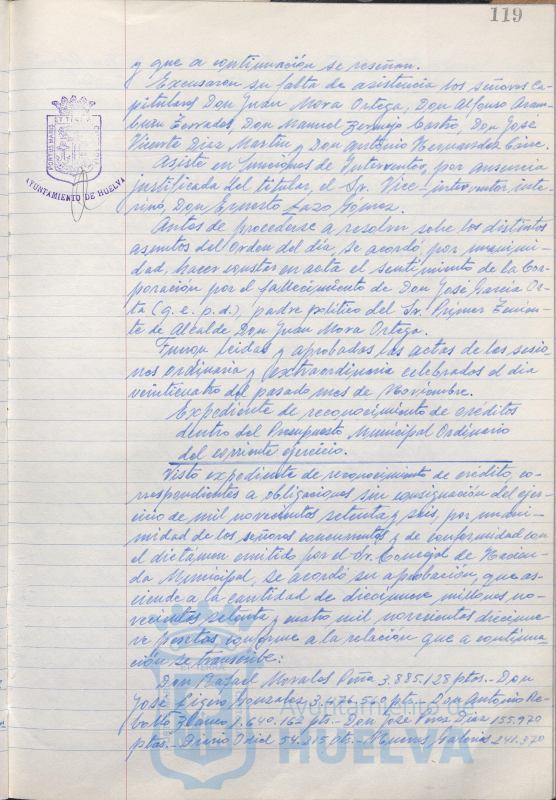 119
y que a continuación se reseñan.
Excusaron su falta de asistencia los señores Ca-
pitulares Don Juan Mora Ortega, Don Alfonso Aram-
buru Terrades, Don Manuel Bermejo Castro, Don José
Vicente Díaz Martín y Don Antonio Hernandez
Asiste en funciones de Interventor, por ausencia
justificada del titular, el Sr. Vice-interventor inte-
rino, Don Ernesto Lazo Gómez.
Antes de procederse a resolver sobre los distintos
asuntos del Orden del día se acordó por unanimi-
dad, hacer constar en acta el sentimiento de la Cor-
poración por el fallecimiento de Don José García Or-
ta (q.e.p.d.), padre político del Sr. Primer Tenien-
te de Alcalde Don Juan Mora Ortega.
Fueron leidas y aprobadas, las actas de las sesio
nes ordinaria y extraordinaria celebradas el dia
veinticuatro del pasado mes de Noviembre.
Expediente de reconocimiento de créditos
dentro del Presupuesto Municipal Ordinario
del corriente ejercicio.
Visto expediente de reconocimiento de crédito, co-
rrespondientes a obligaciones sin consignación del ejer-
cicio de mil novecientos setenta y seis, por unani-
midad de los señores concurrentes y de conformidad con
el dictámen emitido por el Sr. Concejal de Hacien-
da Municipal, se acordó su aprobación, que as-
ciende a la cantidad de diecinueve millones no-
vecientas setenta y cuatro mil novecientas diecinue-
ve pesetas conforme a la relación que a continua-
ción se transcribe:
Don Rafael Morales Peña 3.885.128 ptas.- Don
José Ligero Gonzalez 3.476.540 pts.- Don Antonio Re-
bollo Blanco 1.640.162 pts.- Don José Pérez Díaz 155.970
ptas.- Diario Odiel 54.215 pts.- Galonis 241.370
PORTUS MARIS ET TERRAE
AYUNTAMIENTO DE HUELVA
Ayuntamiento de
HUELVA